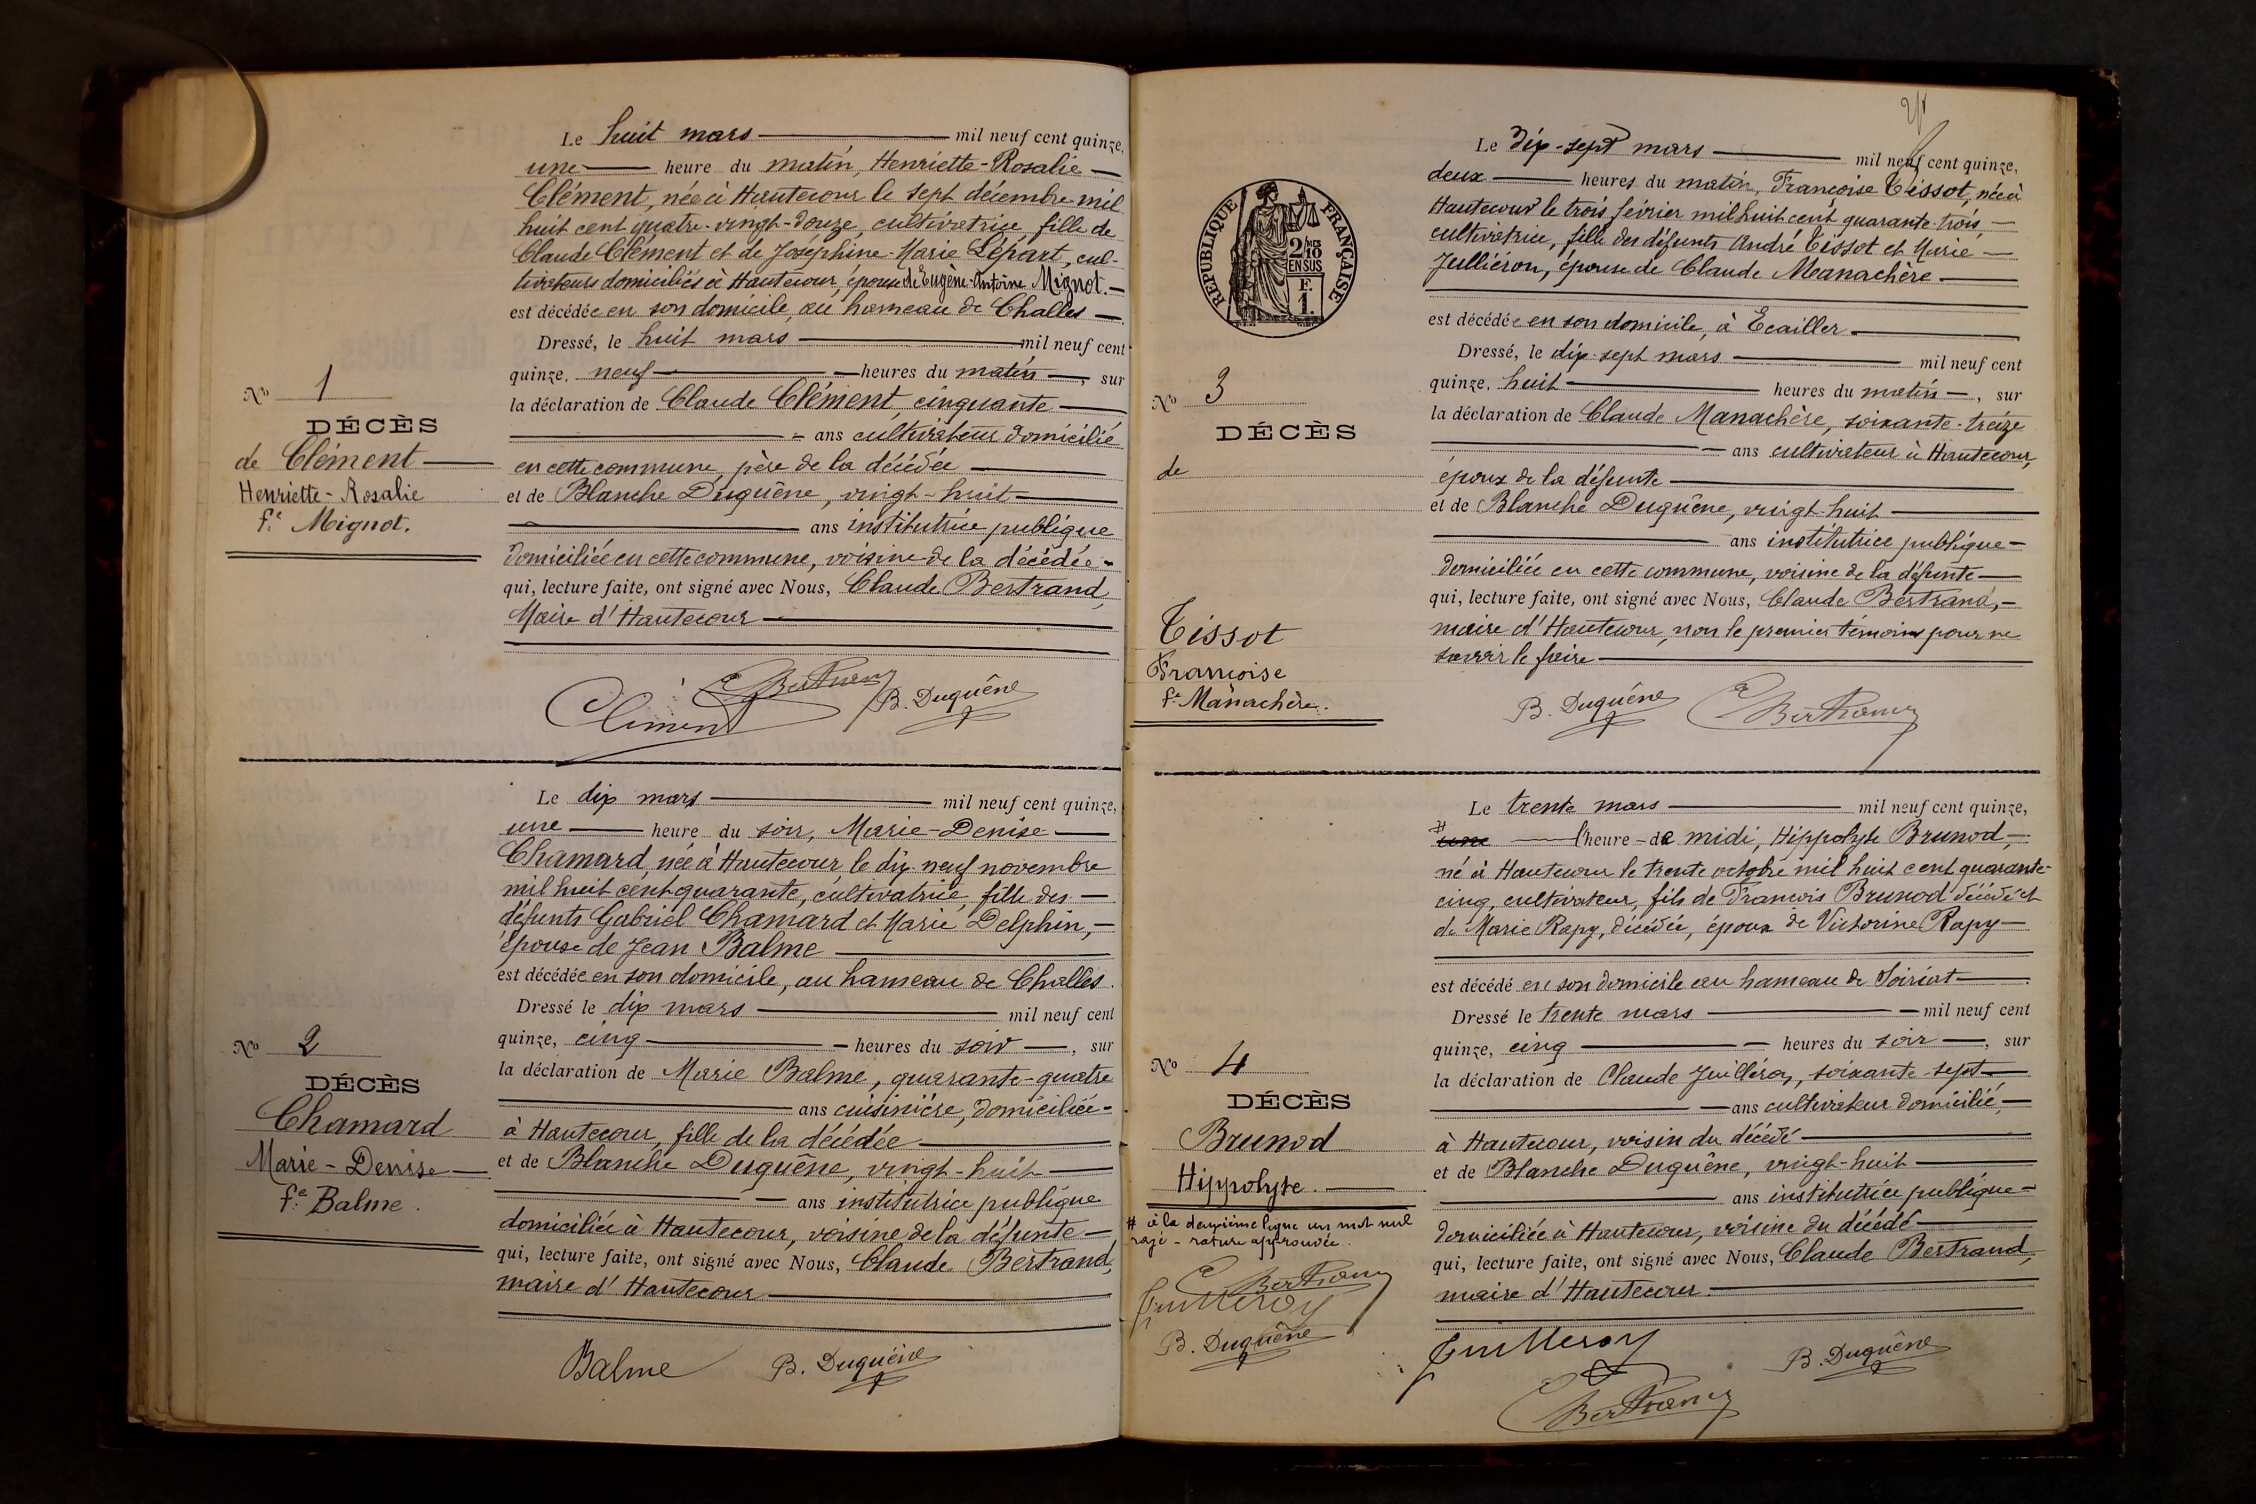 Le huit mars mil neuf cent quinze,
une heure du matin, Henriette-Rosalie
Clément, née à Hautecour le sept décembre mil
huit cent quatre-vingt-douze, cultivatrice, fille de
Claude Clément et de Joséphine-Marie Lépart, cul-
tivateurs domiciliés à Hautecour, épouse de Eugène-Antoine Mignot.
est décédée en son domicile, au hameau de Challes
Dressé, le huit mars mil neuf cent
quinze, neuf heures du matin, sur
la déclaration de Claude Clément, cinquante
ans cultivateur domicilié
en cette commune, père de la décédée
et de Blanche Duquêne, vingt-huit
ans institutrice publique
domiciliée en cette commune, voisine de la décédée
qui, lecture faite, ont signé avec Nous, Claude Bertrand,
Maire d'Hautecour
No 1
DÉCÈS
de Clément
Henriette-Rosalie
fe Mignot.
Clément
C Bertrand
B. Duquêne
Le dix mars mil neuf cent quinze,
une heure du soir, Marie-Denise
Chamard, née à Hautecour le dix-neuf novembre
mil huit cent quarante, cultivatrice, fille des
défunts Gabriel Chamard et Marie Delphin,
épouse de Jean Balme
est décédée en son domicile, au hameau de Challes.
Dressé le dix mars mil neuf cent
quinze, cinq heures du soir, sur
la déclaration de Marie Balme, quarante-quatre
ans cuisinière, domiciliée
à Hautecour, fille de la décédée
et de Blanche Duquêne, vingt-huit
ans institutrice publique
domiciliée à Hautecour, voisine de la défunte,
qui, lecture faite, ont signé avec Nous, Claude Bertrand,
maire d'Hautecour
No 2
DÉCÈS
Chamard
Marie-Denise
fe Balme.
Balme
B. Duquêne
Le dix-sept mars mil neuf cent quinze,
deux heures du matin, Françoise Tissot, née à
Hautecour le trois février mil huit cent quarante-trois,
cultivatrice, fille des défunts André Tissot et Marie
Julliéron, épouse de Claude Manachère
est décédée en son domicile, à Ecailler
Dressé, le dix-sept mars mil neuf cent
quinze, huit heures du matin, sur
la déclaration de Claude Manachère, soixante-treize
ans cultivateur à Hautecour,
époux de la défunte
et de Blanche Duquêne, vingt-huit
ans institutrice publique
domiciliée en cette commune, voisine de la défunte
qui, lecture faite, ont signé avec Nous, Claude Bertrand,
maire d'Hautecour, non le premier témoins pour ne
savoir le faire
RÉPUBLIQUE FRANÇAISE
2/10 MES
EN SUS
F.
1.
No 3
DÉCÈS
de
Tissot
Françoise
fe Manachère.
B. Duquêne
C Bertrand
Le trente mars mil neuf cent quinze,
# une l'heure de midi, Hippolyte Brunod,
né à Hautecour le trente octobre mil huit cent quarante-
cinq, cultivateur, fils de François Brunod décédé et
de Marie Rapy, décédée, époux de Victorine Rapy
est décédé en son domicile au hameau de Soiriat
Dressé le trente mars mil neuf cent
quinze, cinq heures du soir, sur
la déclaration de Claude Juilléron, soixante-sept
ans cultivateur domicilié,
à Hautecour, voisin du décédé
et de Blanche Duquêne, vingt-huit
ans institutrice publique
domiciliée à Hautecour, voisine du décédé
qui, lecture faite, ont signé avec Nous, Claude Bertrand,
maire d'Hautecour
No 4
DÉCÈS
Brunod
Hippolyte.
# à la deuxième ligne un mot nul
rayé - rature approuvée.
C Bertrand
B. Duquêne
B. Duquêne
C Bertrand